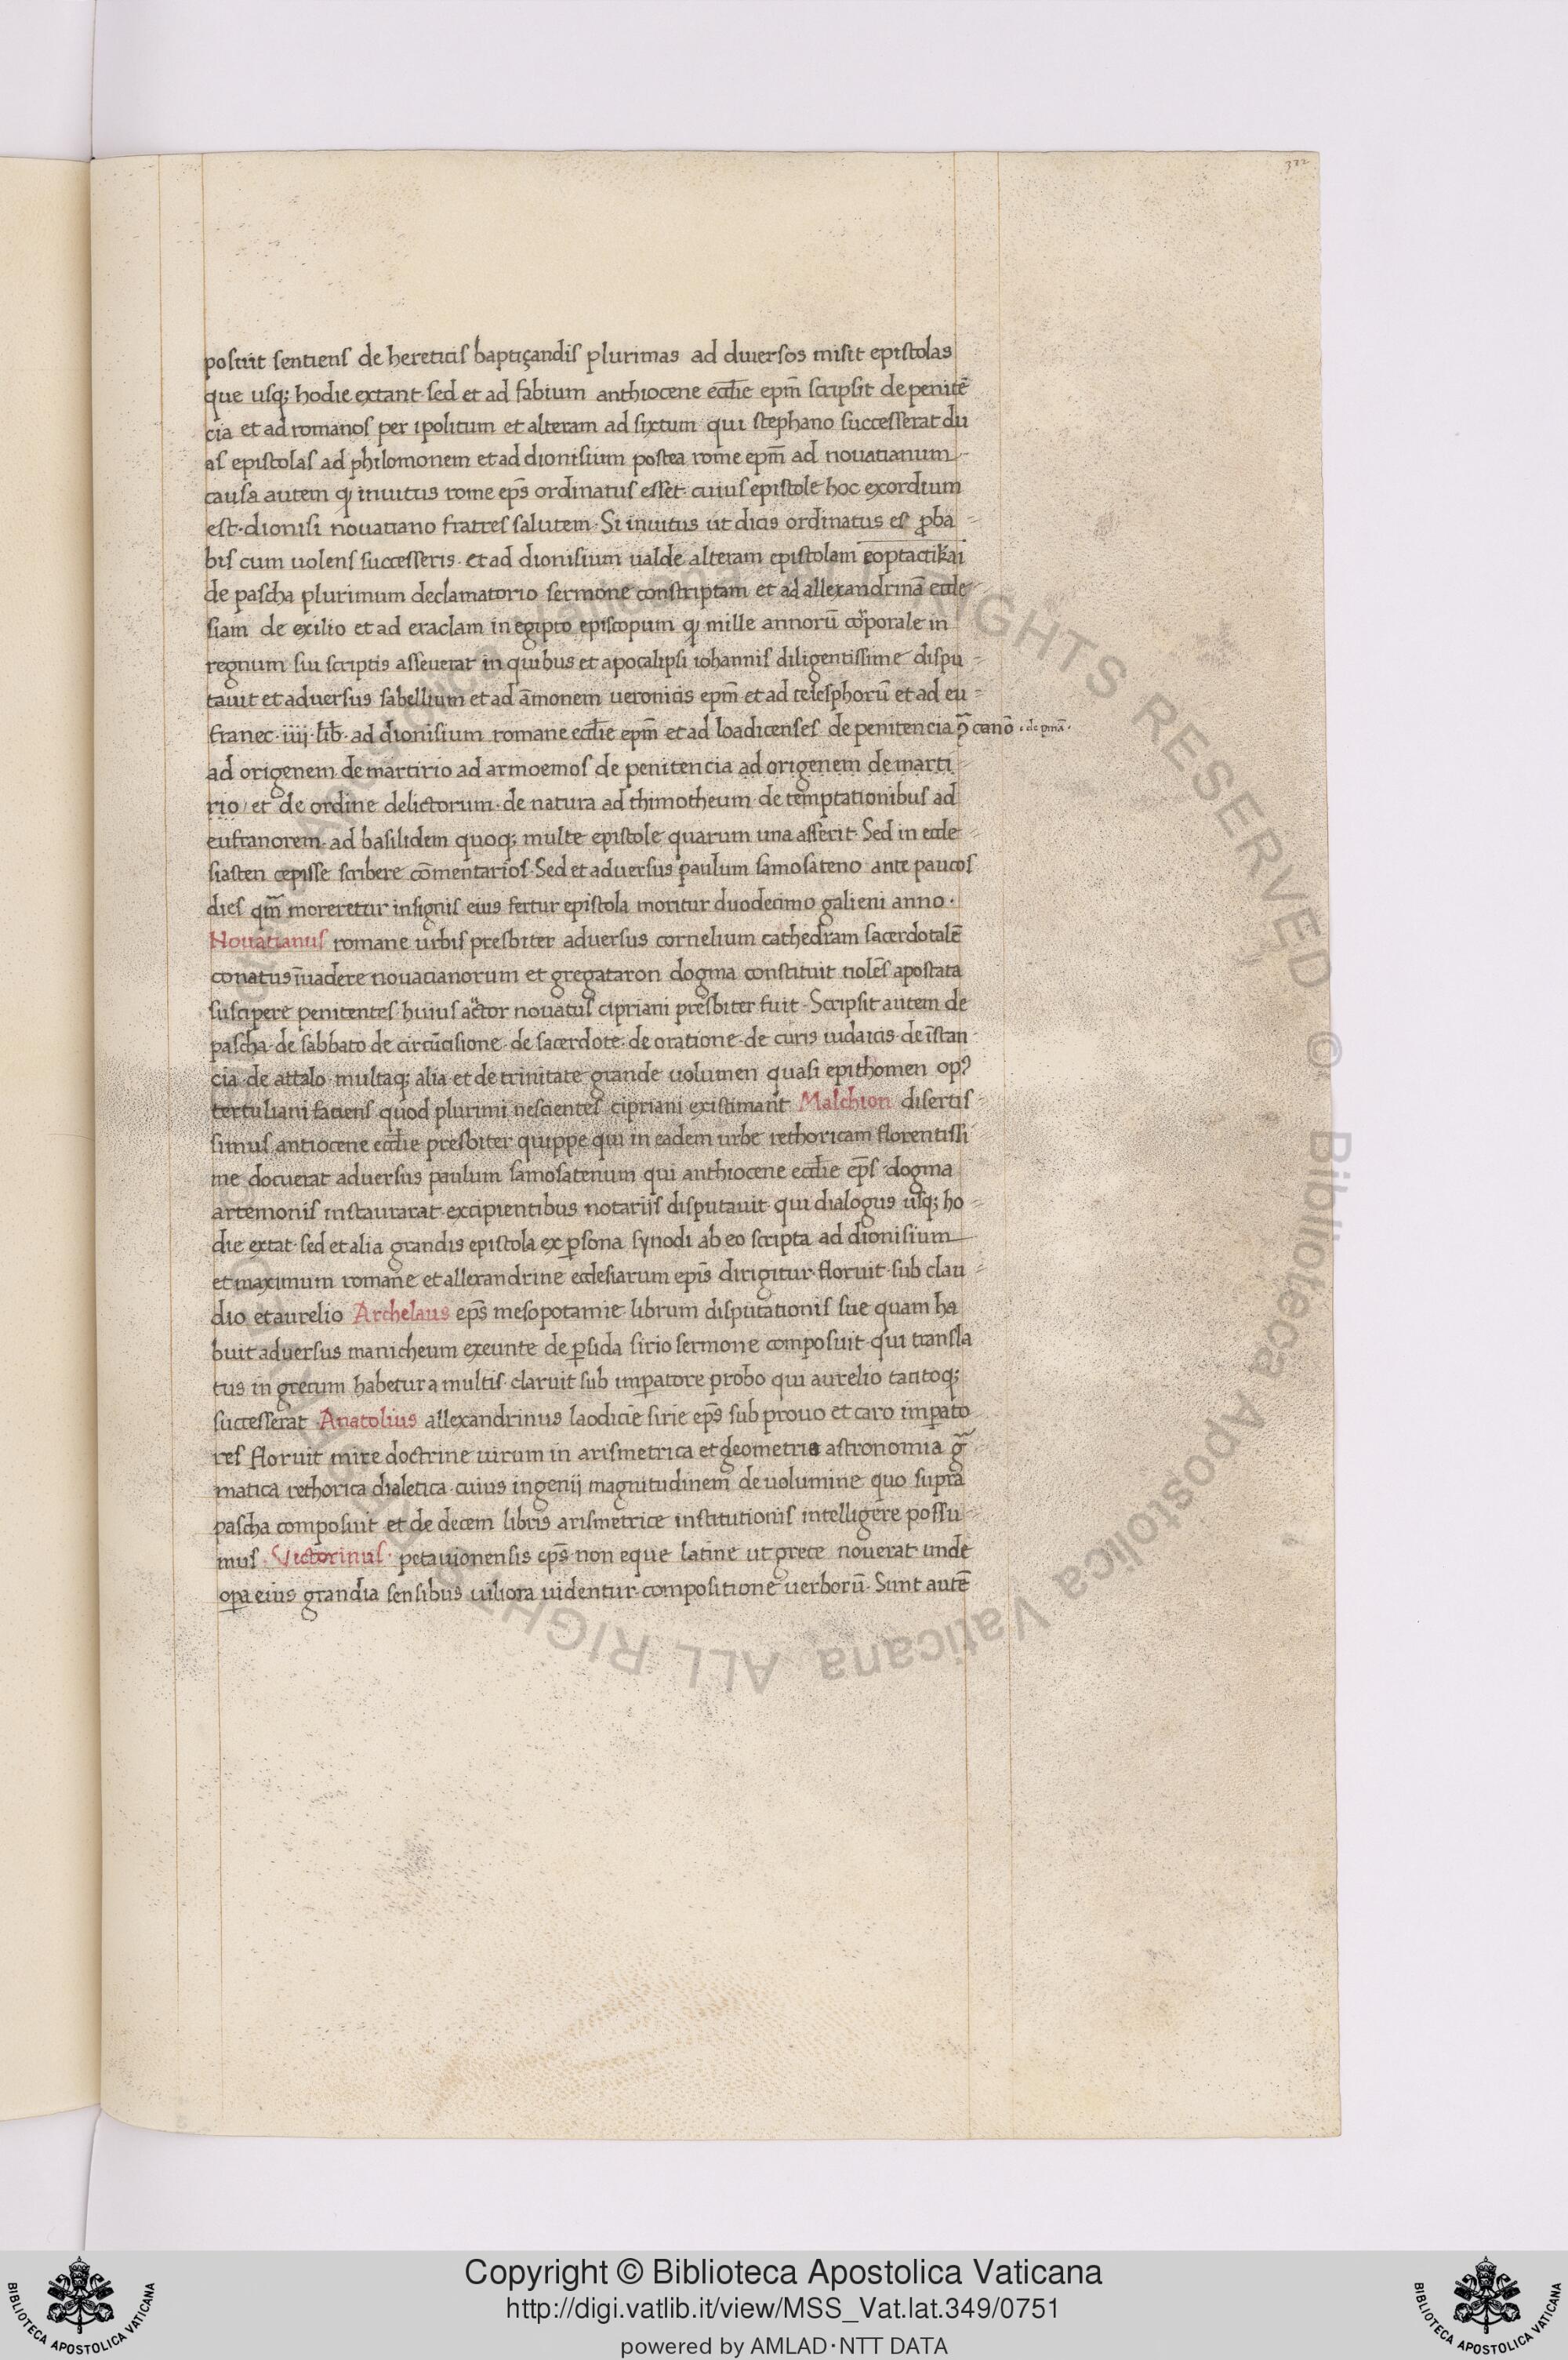 372
posuit sentiens de hereticis baptiçandis plurimas ad diuersos misit epistolas
que usq; hodie extant· sed et ad fabium anthiocene eccl̄ie epm̄ scripsit de penitē
cia et ad romanos per ipolitum et alteram ad sixtum qui stephano successerat du
as epistolas ad philomonem et ad dionisium postea rome epm̄ ad nouatianum
causa autem ꝙ inuitus rome ep̄s ordinatus esset· cuius epistole hoc exordium
est· dionisi nouatiano fratres salutem· Si inuitus ut dicis ordinatus es ꝓba
bis cum uolens successeris· et ad dionisium ualde alteram epistolam eoptactikai
de pascha plurimum declamatorio sermone conscriptam et ad allexandrinā eccle
siam de exilio et ad eraclam in egipto episcopum ꝙ mille annorū corporale in
regnum sui scriptis asseuerat in quibus et apocalipsi iohannis diligentissime dispu
tauit et aduersus sabellium et ad āmonem ueronicis epm̄ et ad telesphorū et ad eu
franec· iiij· lib̄· ad dionisium romane eccl̄ie epm̄ et ad loadicenses de penitencia ꝯ̄ canō
ad origenem de martirio ad armoemos de penitencia ad origenem de marti
rio et de ordine delictorum· de natura ad thimotheum· de temptationibus ad
eufranorem· ad basilidem quoq; multe epistole quarum una asserit· Sed in eccle
siasten cepisse scribere cōmentarios· Sed et aduersus paulum samosateno ante paucos
dies qm̄ moreretur insignis eius fertur epistola moritur duodecimo galieni anno·
Nouatianus romane urbis presbiter aduersus cornelium cathedram sacerdotalē
conatus īuadere nouacianorum et gregataron dogma constituit nolēs apostata
suscipere penitentes· huius actor nouatus cipriani presbiter fuit· Scripsit autem de
pascha· de sabbato de circūcisione· de sacerdote· de oratione· de curis iudaicis· de īstan
cia· de attalo· multaq; alia· et de trinitate grande uolumen quasi epithomen opꝰ
tertuliani faciens quod plurimi nescientes cipriani existimant̄ Malchion disertis
simus antiocene eccl̄ie presbiter quippe qui in eadem urbe rethoricam florentissi
me docuerat aduersus paulum samosatenum qui anthiocene eccl̄ie ep̄s dogma
artemonis instaurarat· excipientibus notarijs disputauit· qui dialogus usq; ho
die extat· sed et alia grandis epistola ex ꝑsona synodi ab eo scripta ad dionisium
et maximum romane et allexandrine ecclesiarum epīs dirigitur· floruit· sub clau
dio et aurelio Archelaus ep̄s mesopotamie· librum disputationis sue quam ha
buit aduersus manicheum exeunte de ꝑsida sirio sermone composuit· qui transla
tus in grecum habetur a multis· claruit sub imꝑatore probo qui aurelio tacitoq;
successerat· Anatolius allexandrinus laodicie sirie ep̄s sub prouo et caro imꝑato
res floruit mire doctrine uirum in arismetrica et geometria astronomia gr̄a
matica rethorica dialetica· cuius ingenij magnitudinem de uolumine quo supra
pascha composuit et de decem libris arismetrice institutionis intelligere possu
mus· Victorinus· petauionensis ep̄s non eque latine ut grece nouerat· unde
oꝑa eius grandia sensibus uiliora uidentur· compositione uerborū· Sunt autē
Copyright © Biblioteca Apostolica Vaticana
http://digi.vatlib.it/view/MSS_Vat.lat.349/0751
powered by AMLAD·NTT DATA
BIBLIOTECA APOSTOLICA VATICANA
BIBLIOTECA APOSTOLICA VATICANA